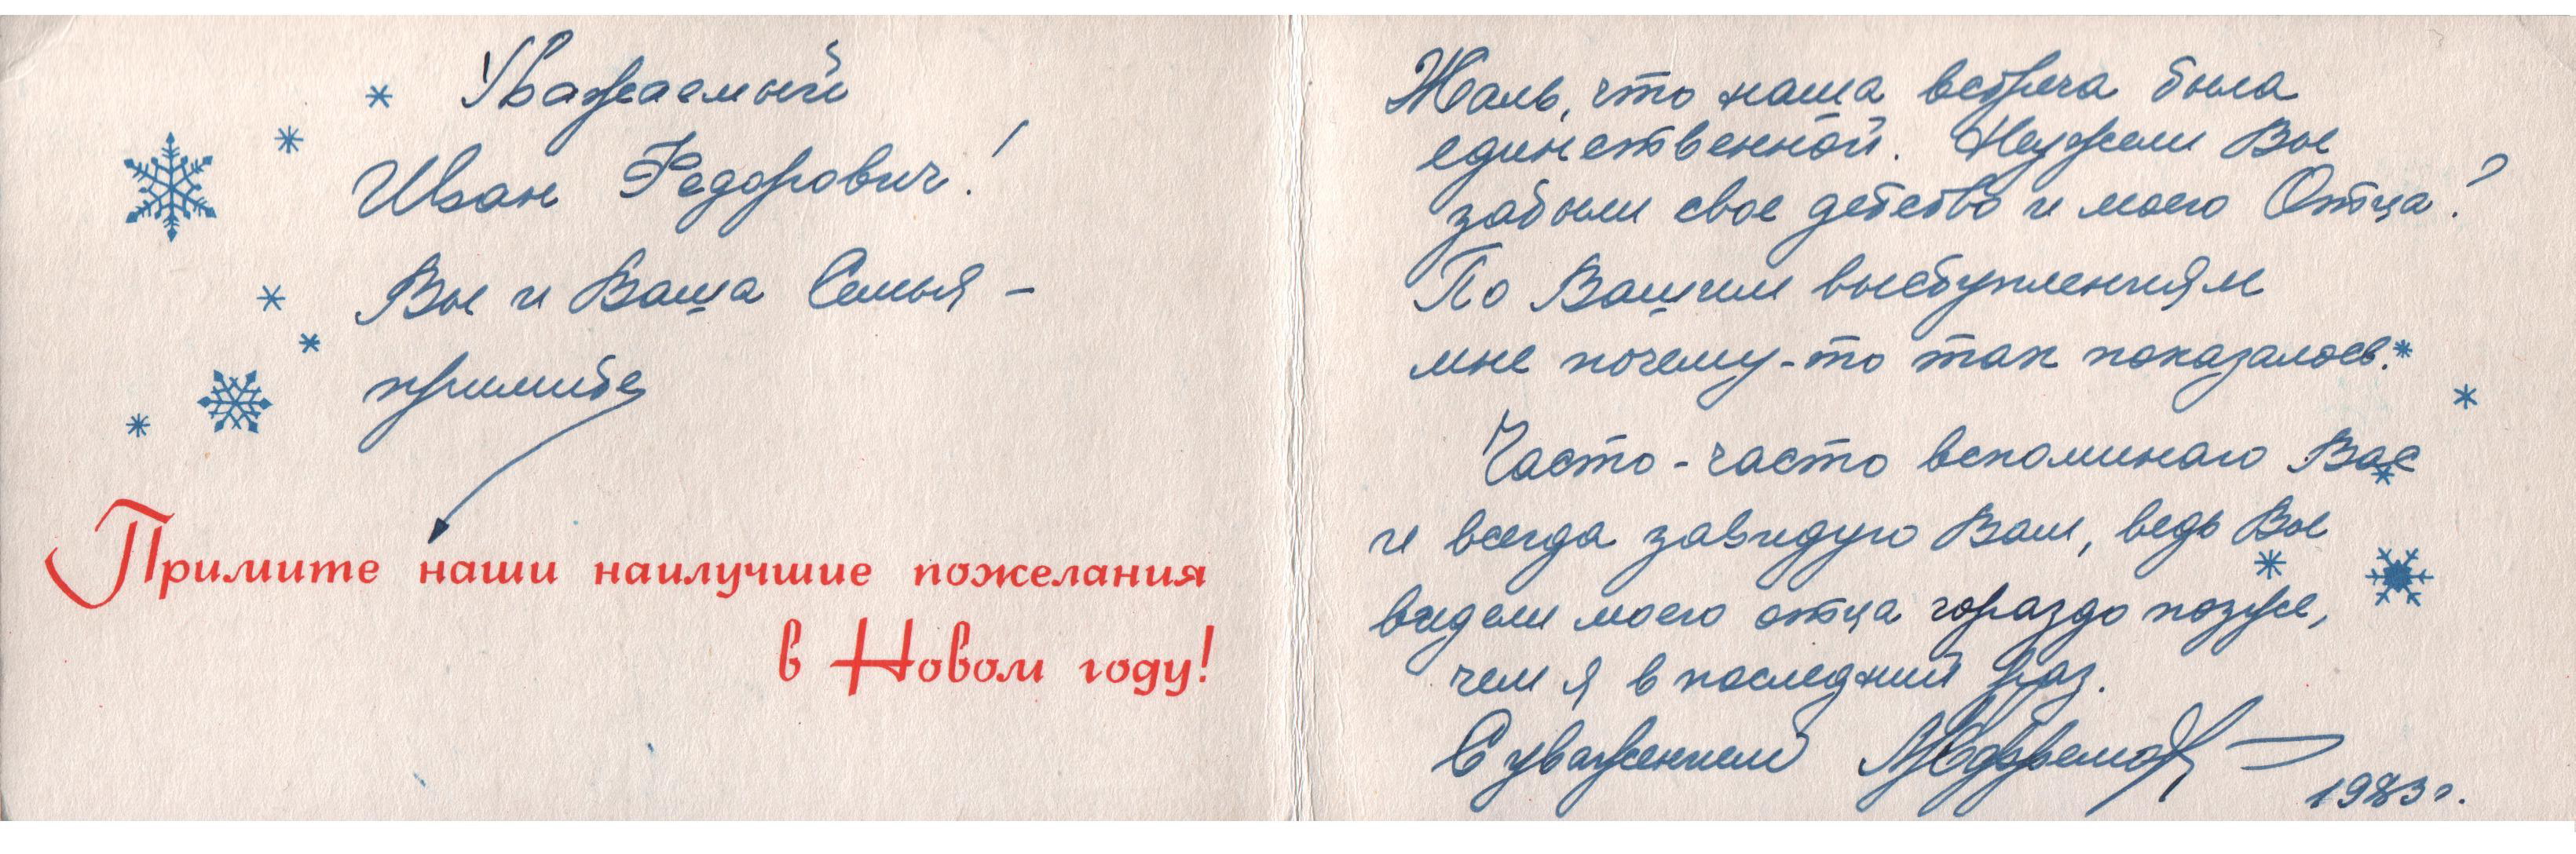 Уважаемый
Иван Федорович!
Вы и Ваша Семья –
примите
Примите наши наилучшие пожелания
в Новом году!
Жаль, что наша встреча была
единственной. Неужели Вы
забыли свое детство и моего Отца?
По Вашим выступлениям
мне почему-то так показалось.
Часто-часто вспоминаю Вас
и всегда завидую Вам, ведь Вы
видели моего отца гораздо позже,
чем я в последний раз.
С уважением
1983 г.